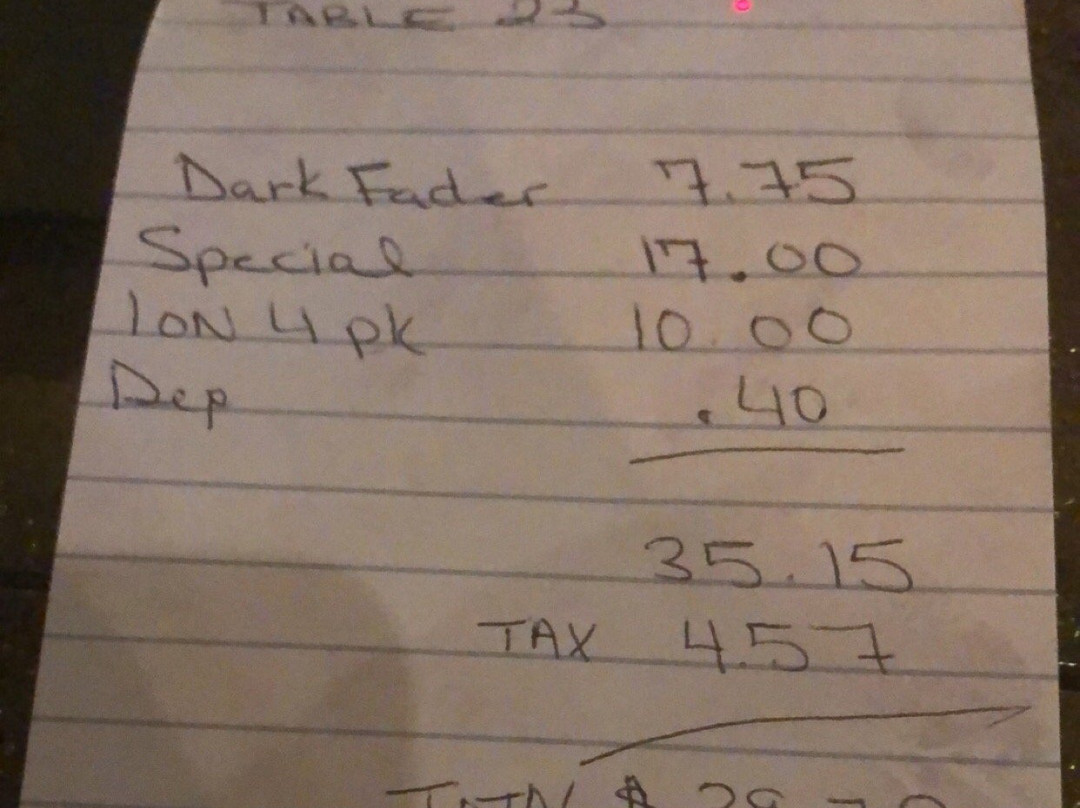 TABLE 23
Dark Fader 7.75
Special 17.00
ION 4 pk 10.00
Dep .40
35.15
TAX 4.57
$